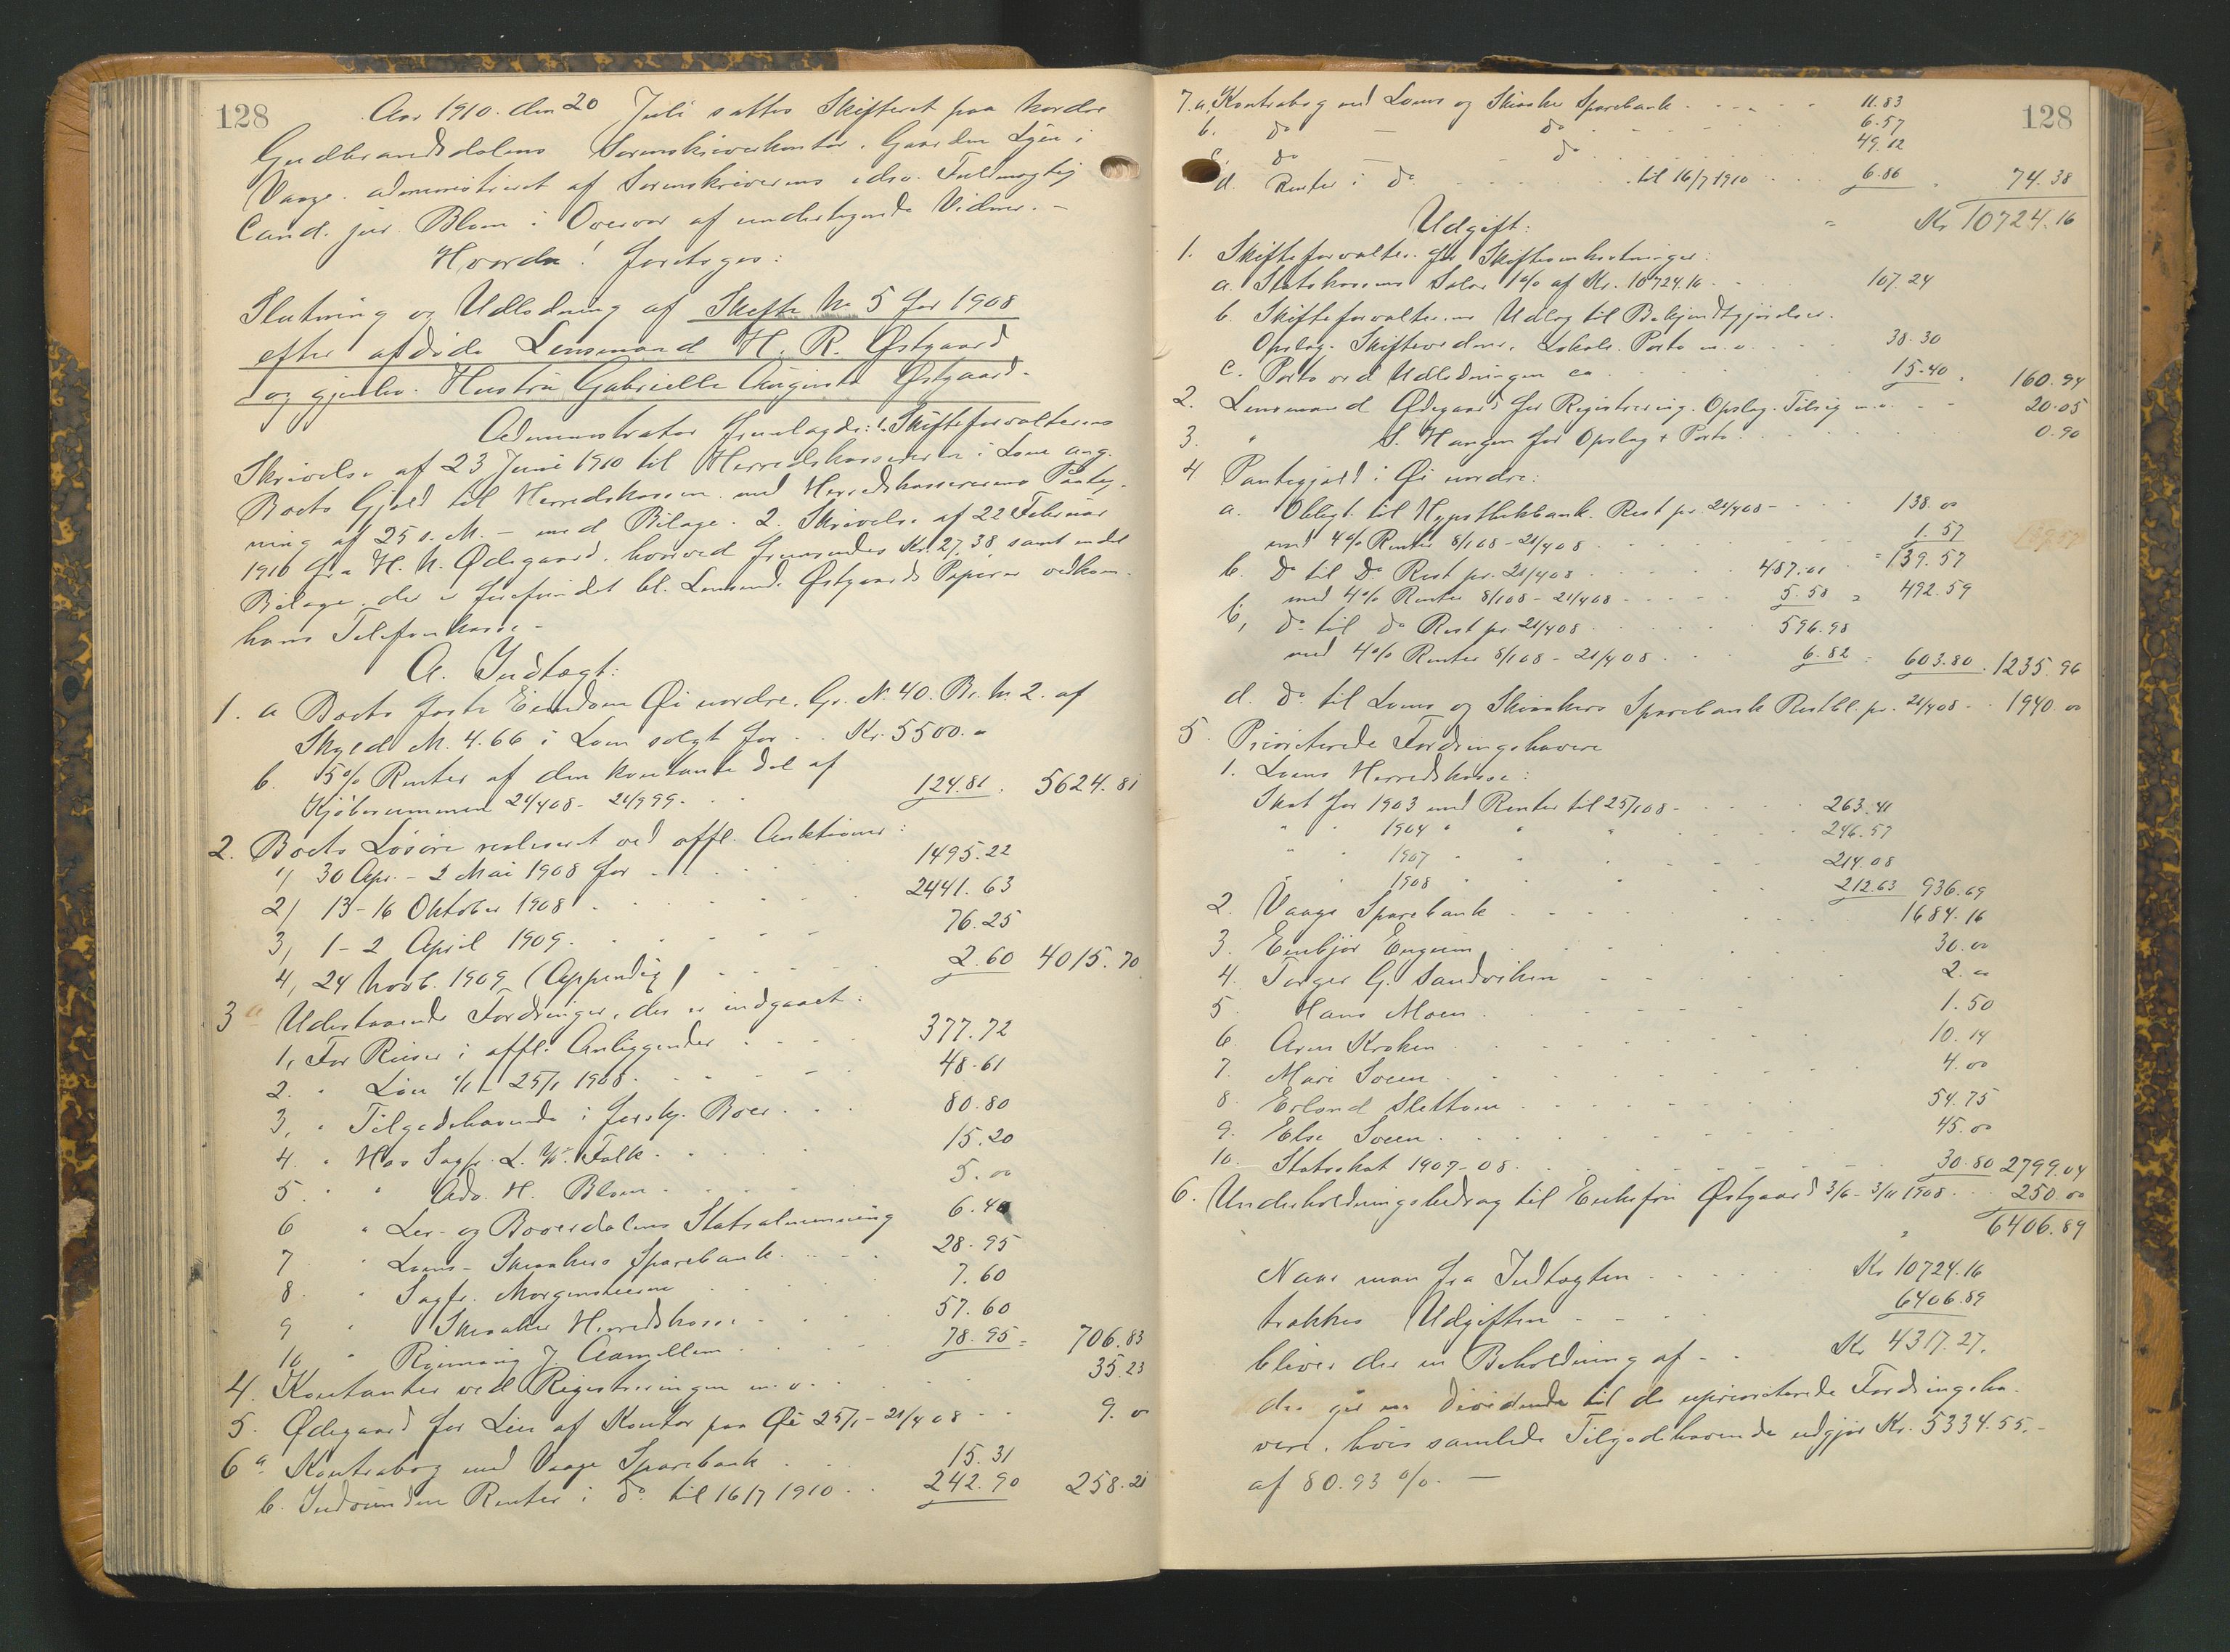 128
Aar 1910 den 20 Juli sattes Skifteret paa Nordre
Gudbrandsdalens Sorenskriverkontor, Gaarden Lyen i
Vaage administreret af Sorenskriverens edsv. Fuldmægtig
Cand. jur. Blom i Overvær af undertegnede Vidner. -
Hvorda! foretoges:
Slutning og Udlodning af Skifte No 5 for 1908
efter afdøde Lensmand H. R. Østgaard
og gjenlev. Hustru Gabrielle Augusta Østgaard.
Administrator fremlagde: 1. Skifteforvalterens
Skrivelse af 23 Juni 1910 til Herredskassereren i Lom ang.
Boets Gjæld til Herredskassen med Herredskassererens Paateg-
ning af 25 s. M. - med Bilage. 2. Skrivelse af 22 Februar
1910 fra H. N. Ødegaard, hvorved fremsendes Kr. 27.38 samt endel
Bilage, der er forefundet bl. Lensmd. Østgaards Papirer vedkom-
hans Telefonkasse -
A. Indtægt:
1. a Boets faste Eiendom Øi nordre, G. N. 40. Br. No 2. af
Skyld M. 4.66 i Lom solgt for . . Kr. 5500.00
b. 5% Renter af den kontante Del af
Kjøbesummen 21/4 08 - 21/9 99. . . 124.81. 5624.81
2. Boets Løsøre realiseret ved offl. Auktioner:
1/ 30 Apr. - 2 Mai 1908 for . . . 1495.22
2/ 13-16 Oktober 1908 . . . 2441.63
3, 1-2 April 1909. . . . 76.25
4, 24 Novb. 1909 (Appendix) . . . 2.60 4015.70
3 a Udestaaende Fordringer, der er indgaaet:
1, For Reiser i offl. Anliggender . . . 377.72
2. " Løn 1/1 - 25/1 1908. . . . 48.61
3, " Tilgodehavende i forskj. Boer . . . 80.80
4. " Hos Sagf. L. W. Falk. . . . 15.20
5. " " Adv. H. Blom . . . 5.00
6 " Ler- og Bøverdalens Statsalmenning 6.40
7 " Loms - Skiaakers Sparebank. . . . 28.95
8 " Sagfr. Morgenstierne . . . 7.60
9 " Skiaaker Herredskasse . . . 57.60
10 " J. Aamellem . . . 78.95 = 706.83
4. Kontanter ved Registreringen m. v. . . . 35.23
5. Ødegaard for Leie af Kontor paa Øi 25/1 - 21/4 08 . . 9.00
6 a. Kontrabog med Vaage Sparebank . . 15.31
b. Indvundne Renter i do til 16/7 1910 . . 242.90 258.21
128
7. a, Kontrabog med Loms og Skiaaker Sparebank . . . 11.83
b. do - do . . . 6.57
c. do - do . . . 49.12
d. Renter i do . . . til 16/7 1910 . . . 6.86 74.38
= Kr 10724.16
Udgift:
1. Skifteforvalter for Skifteomkostninger:
a. Statskassens Salær 1% af Kr. 10724.16 . . . 107.24
b. Skifteforvalterens Udlæg til Bekjendtgjørelser,
Opslag, Skiftevidner, Lokale, Porto m. v. . . . 38.30
c. Porto ved Udlodningen ca . . . 15.40 . 160.94
2. Lensmand Ødegaard for Registrering, Opslag, Tilsig m. v. . . 20.05
3. " S. Haugen for Opslag + Porto. . . . 0.90
4 Pantegjæld i Øi nordre:
a. Obligt. til Hypothekbank. Rest pr. 21/4 08 - . . . 138.00
med 4% Renter 8/1 08 - 21/4 08 . . . 1.57 139.57
= 139.57
b. do til do Rest pr. 21/4 08 . . . 487.01
med 4% Renter 8/1 08 - 21/4 08 . . . 5.58 = 492.59
c, do til do Rest pr. 21/4 08 . . . 596.98
med 4% Renter 8/1 08 - 21/4 08 . . . 6.82 = 603.80 . 1235.96
d. do til Loms og Skiaakers Sparebank Restbl. pr. 21/4 08 . . 1940.00
5. Prioriterede Fordringshavere
1. Loms Herredskasse:
Skat for 1903 med Renter til 25/1 08 - . . . 263.41
" " 1904 " " " 246.57
" " 1907 " " " 214.08
" " 1908 " " " 212.63 936.69
2. Vaage Sparebank . . . 1684.16
3. Embjør . . . 30.00
4. Torger G. Sandviken . . . 2.00
5. Hans Moen . . . 1.50
6. Arne Kroken . . . 10.14
7. Mari Soeen . . . 4.00
8. Erland Slettom . . . 54.75
9. Else Soeen . . . 45.00
10. Statsskat 1907-08 . . . 30.80 2799.04
6. Underholdningsbidrag til Enkefru Østgaard 3/6 - 3/11 1908 . . 250.00
" 6406.89
Naar man fra Indtægten . . . Kr. 10724.16
trækkes Udgiften . . . 6406.89
bliver der en Beholdning af . . Kr 4317.27.
der gir en Dividende til de uprioriterede Fordringsha-
vere, hvis samlede Tilgodehavende udgjør Kr. 5334.55. -
af 80.93 %. -